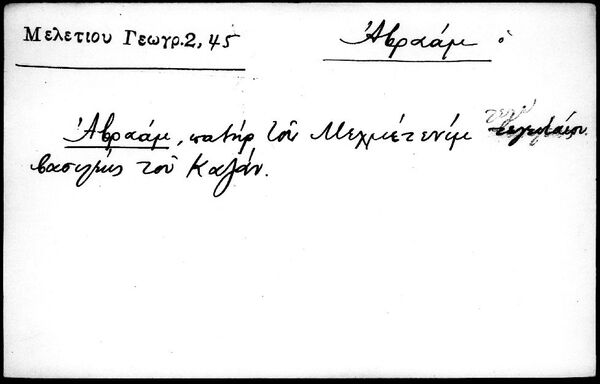 Μελετίου Γεωγρ. 2, 45
Ἀβραάμ ὁ
Ἀβραάμ, πατὴρ τοῦ Μεχμέτενίμ
βασιλέως τοῦ Καζάν.